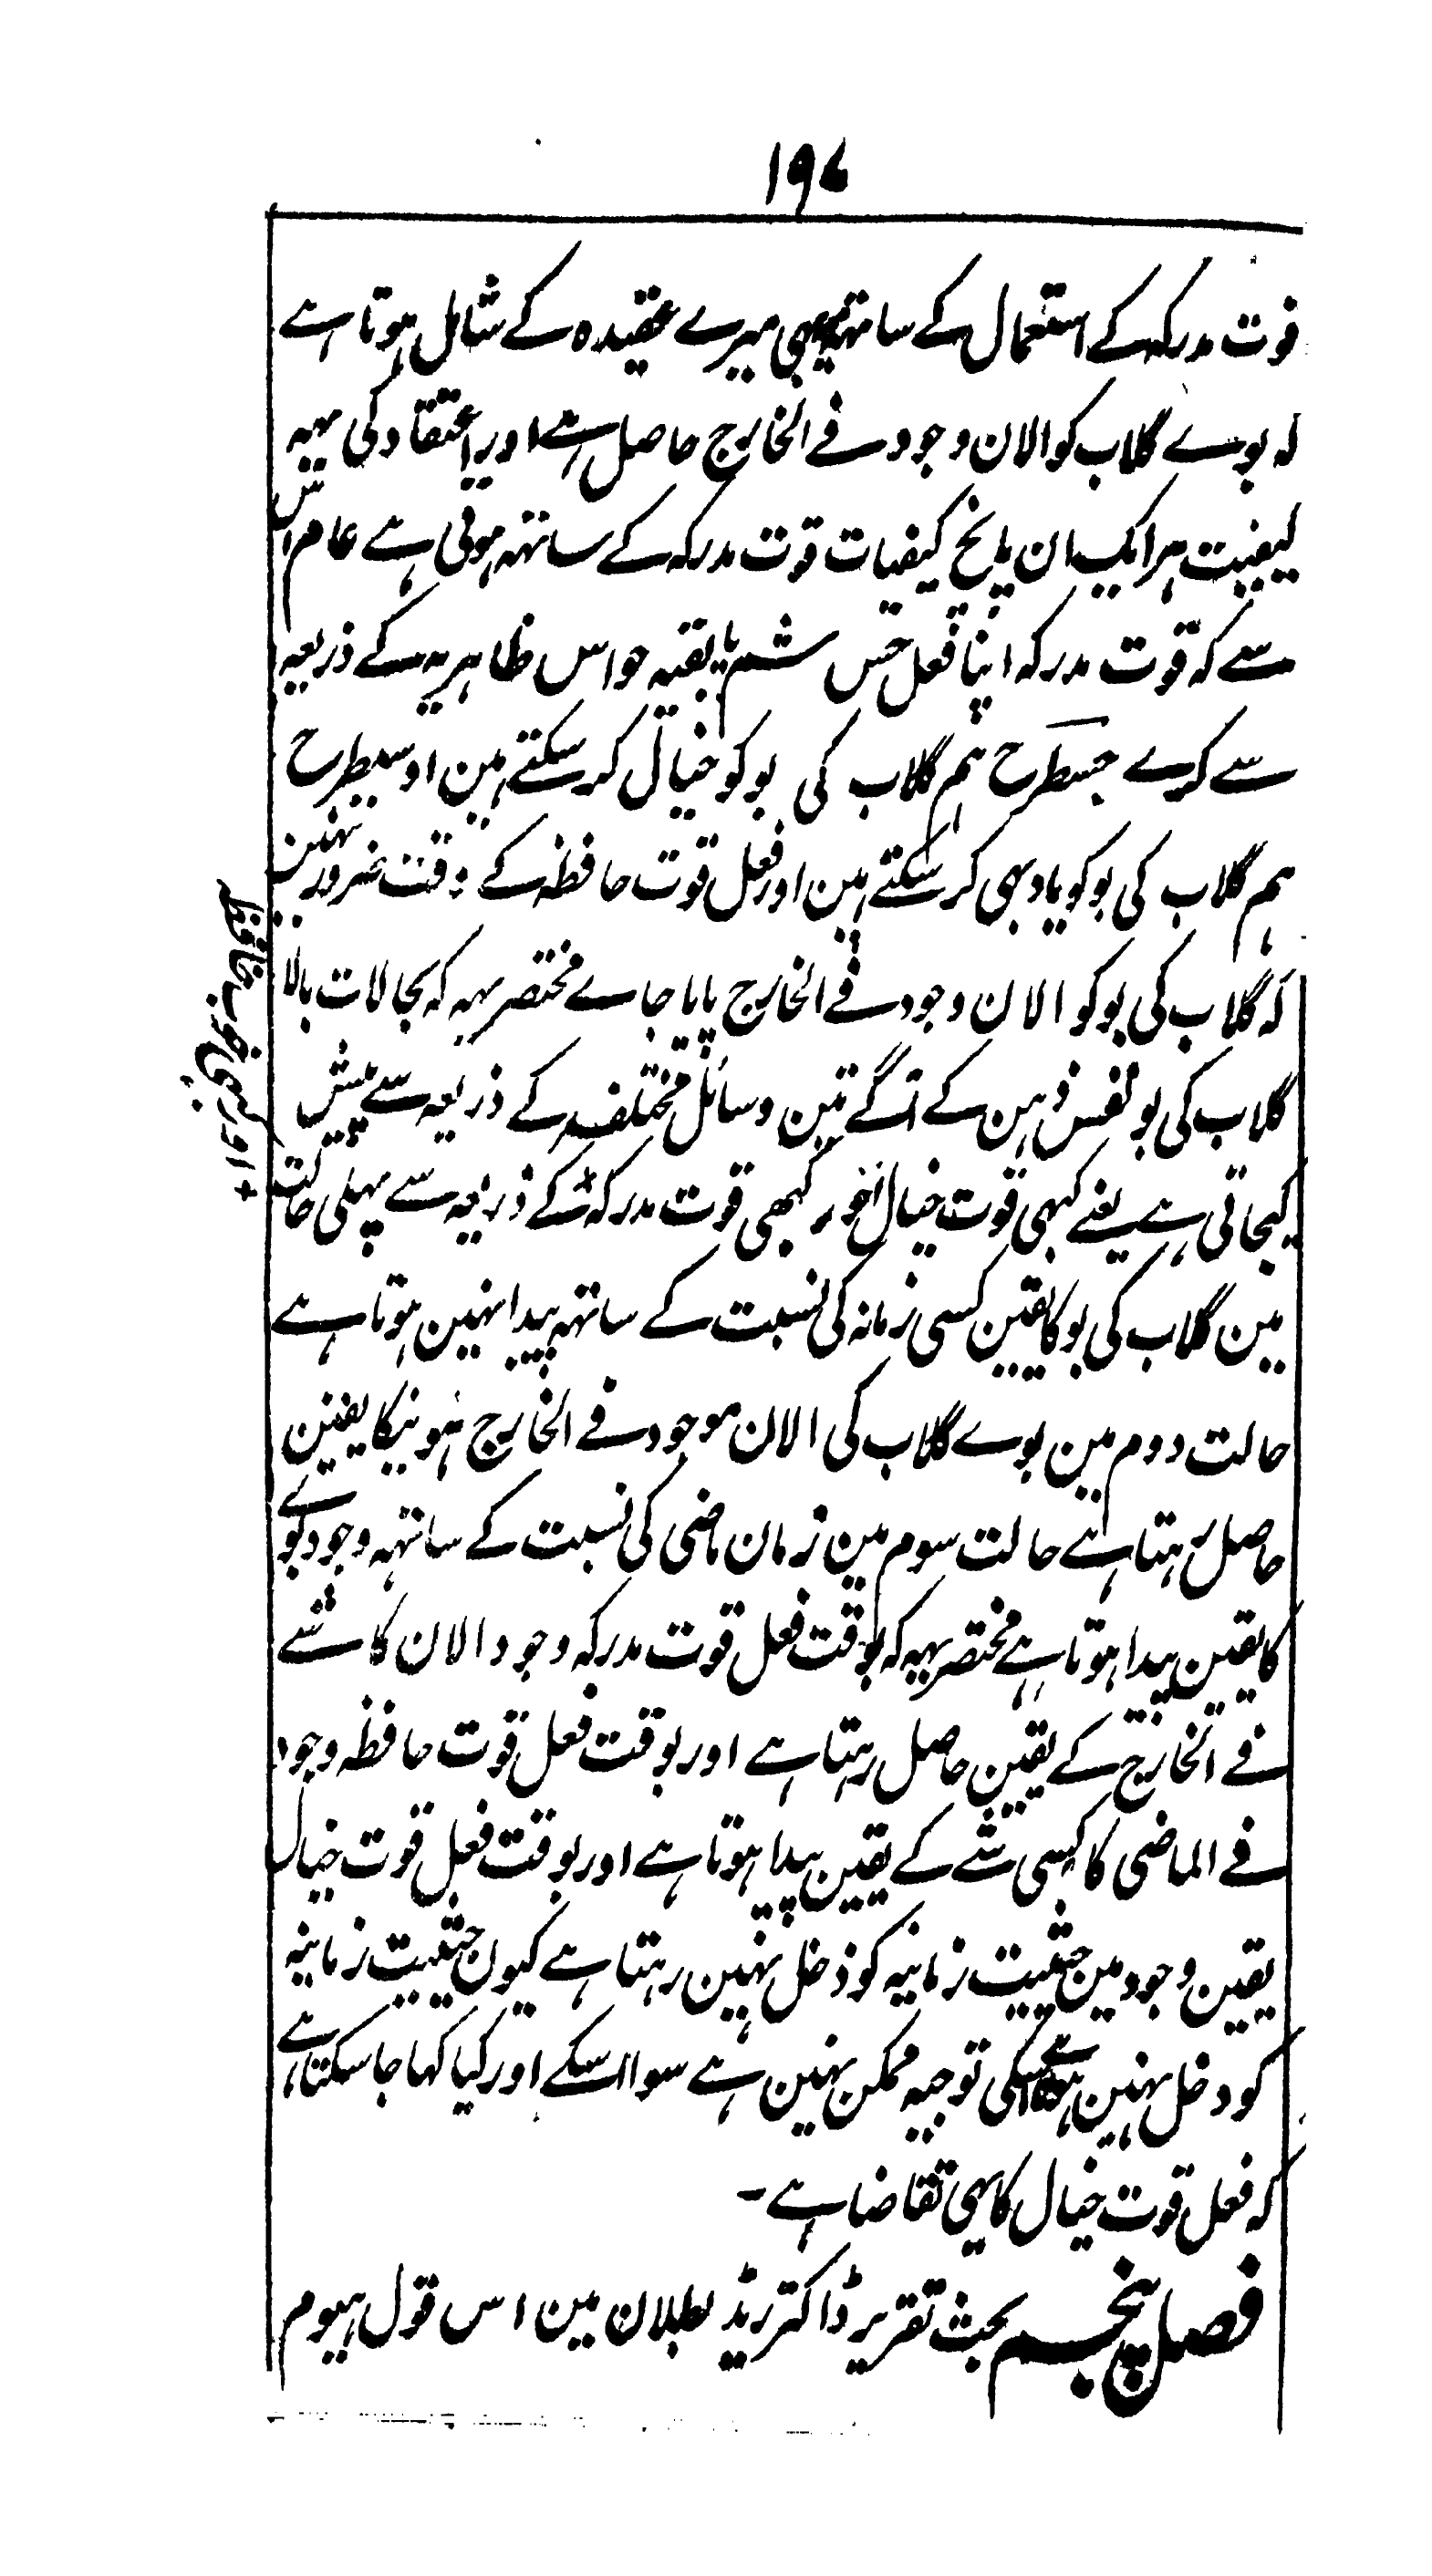 ۱۹۷
قوت مدرکہ کے استعمال کے ساتھہ یہی میرے عقیدہ کے شامل ہوتا ہے
کہ بوے گلاب کو الان وجود فے الخارج حاصل ہے اور اعتقاد کی یہہ
کیفیت ہر ایک ان پانچ کیفیات قوت مدرکہ کے ساتھہ ہوتی ہے عام اس
سے کہ قوت مدرکہ اپنا فعل حس شم یا بقیہ حواس ظاہریہ کے ذریعہ
سے کرے جسطرح ہم گلاب کی بو کو خیال کر سکتے ہین اوسیطرح
ہم گلاب کی بو کو یاد بہی کر سکتے ہین اور فعل قوت حافظہ کے وقت ضرور نہین
کہ گلاب کی بو کو الان وجود فے الخارج پایا جاے مختصر یہہ کہ بحالات بالا
گلاب کی بو نفس ذہن کے آگے تین وسائل مختلفہ کے ذریعہ سے پیش
کیجاتی ہے یعنے کبہی قوت خیال اور کبھی قوت مدرکہ + کے ذریعہ سے پہلی حالت
مین گلاب کی بو کا یقین کسی زمانہ کی نسبت کے ساتھہ پیدا نہین ہوتا ہے
حالت دوم مین بوے گلاب کی الان موجود فے الخارج ہونیکا یقین
حاصل رہتا ہے حالت سوم مین زمان ماضی کی نسبت کے ساتھہ وجود بو کے
کا یقین پیدا ہوتا ہے مختصر یہہ کہ بوقت فعل قوت مدرکہ وجود الان کا شے
فے الخارج کے یقین حاصل رہتا ہے اور بوقت فعل قوت حافظہ وجود
فے الماضی کا کسی شے کے یقین پیدا ہوتا ہے اور بوقت فعل قوت خیال
یقین وجود مین حیثیت زمانیہ کو دخل نہین رہتا ہے کیون حیثیت زمانیہ
کو دخل نہین ہوتا ہے اسکی توجیہ ممکن نہین ہے سوا اسکے اور کیا کہا جا سکتا ہے
کہ فعل قوت خیال کا یہی تقاضا ہے -
فصل پنجم بحث تقریر ڈاکتر ریڈ بطلان مین اس قول ہیوم
+ اور کبہی قوت حافظہ